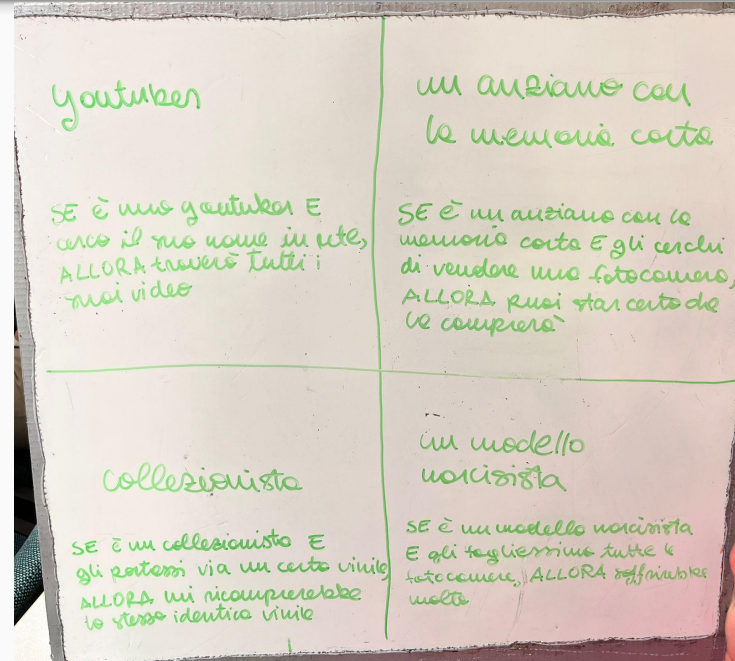 youtuber
SE è uno youtuber E
cerco il suo nome in rete,
ALLORA troverò tutti i
suoi video
un anziano con
la memoria corta
SE è un anziano con la
memoria corta E gli cerchi
di vendere una fotocamera,
ALLORA puoi star certo che
la comprerà
collezionista
SE è un collezionista E
gli portassi via un certo vinile,
ALLORA mi ricomprerebbe
lo stesso identico vinile
un modello
narcisista
SE è un modello narcisista
E gli togliessimo tutte le
fotocamere, ALLORA soffrirebbe
molto